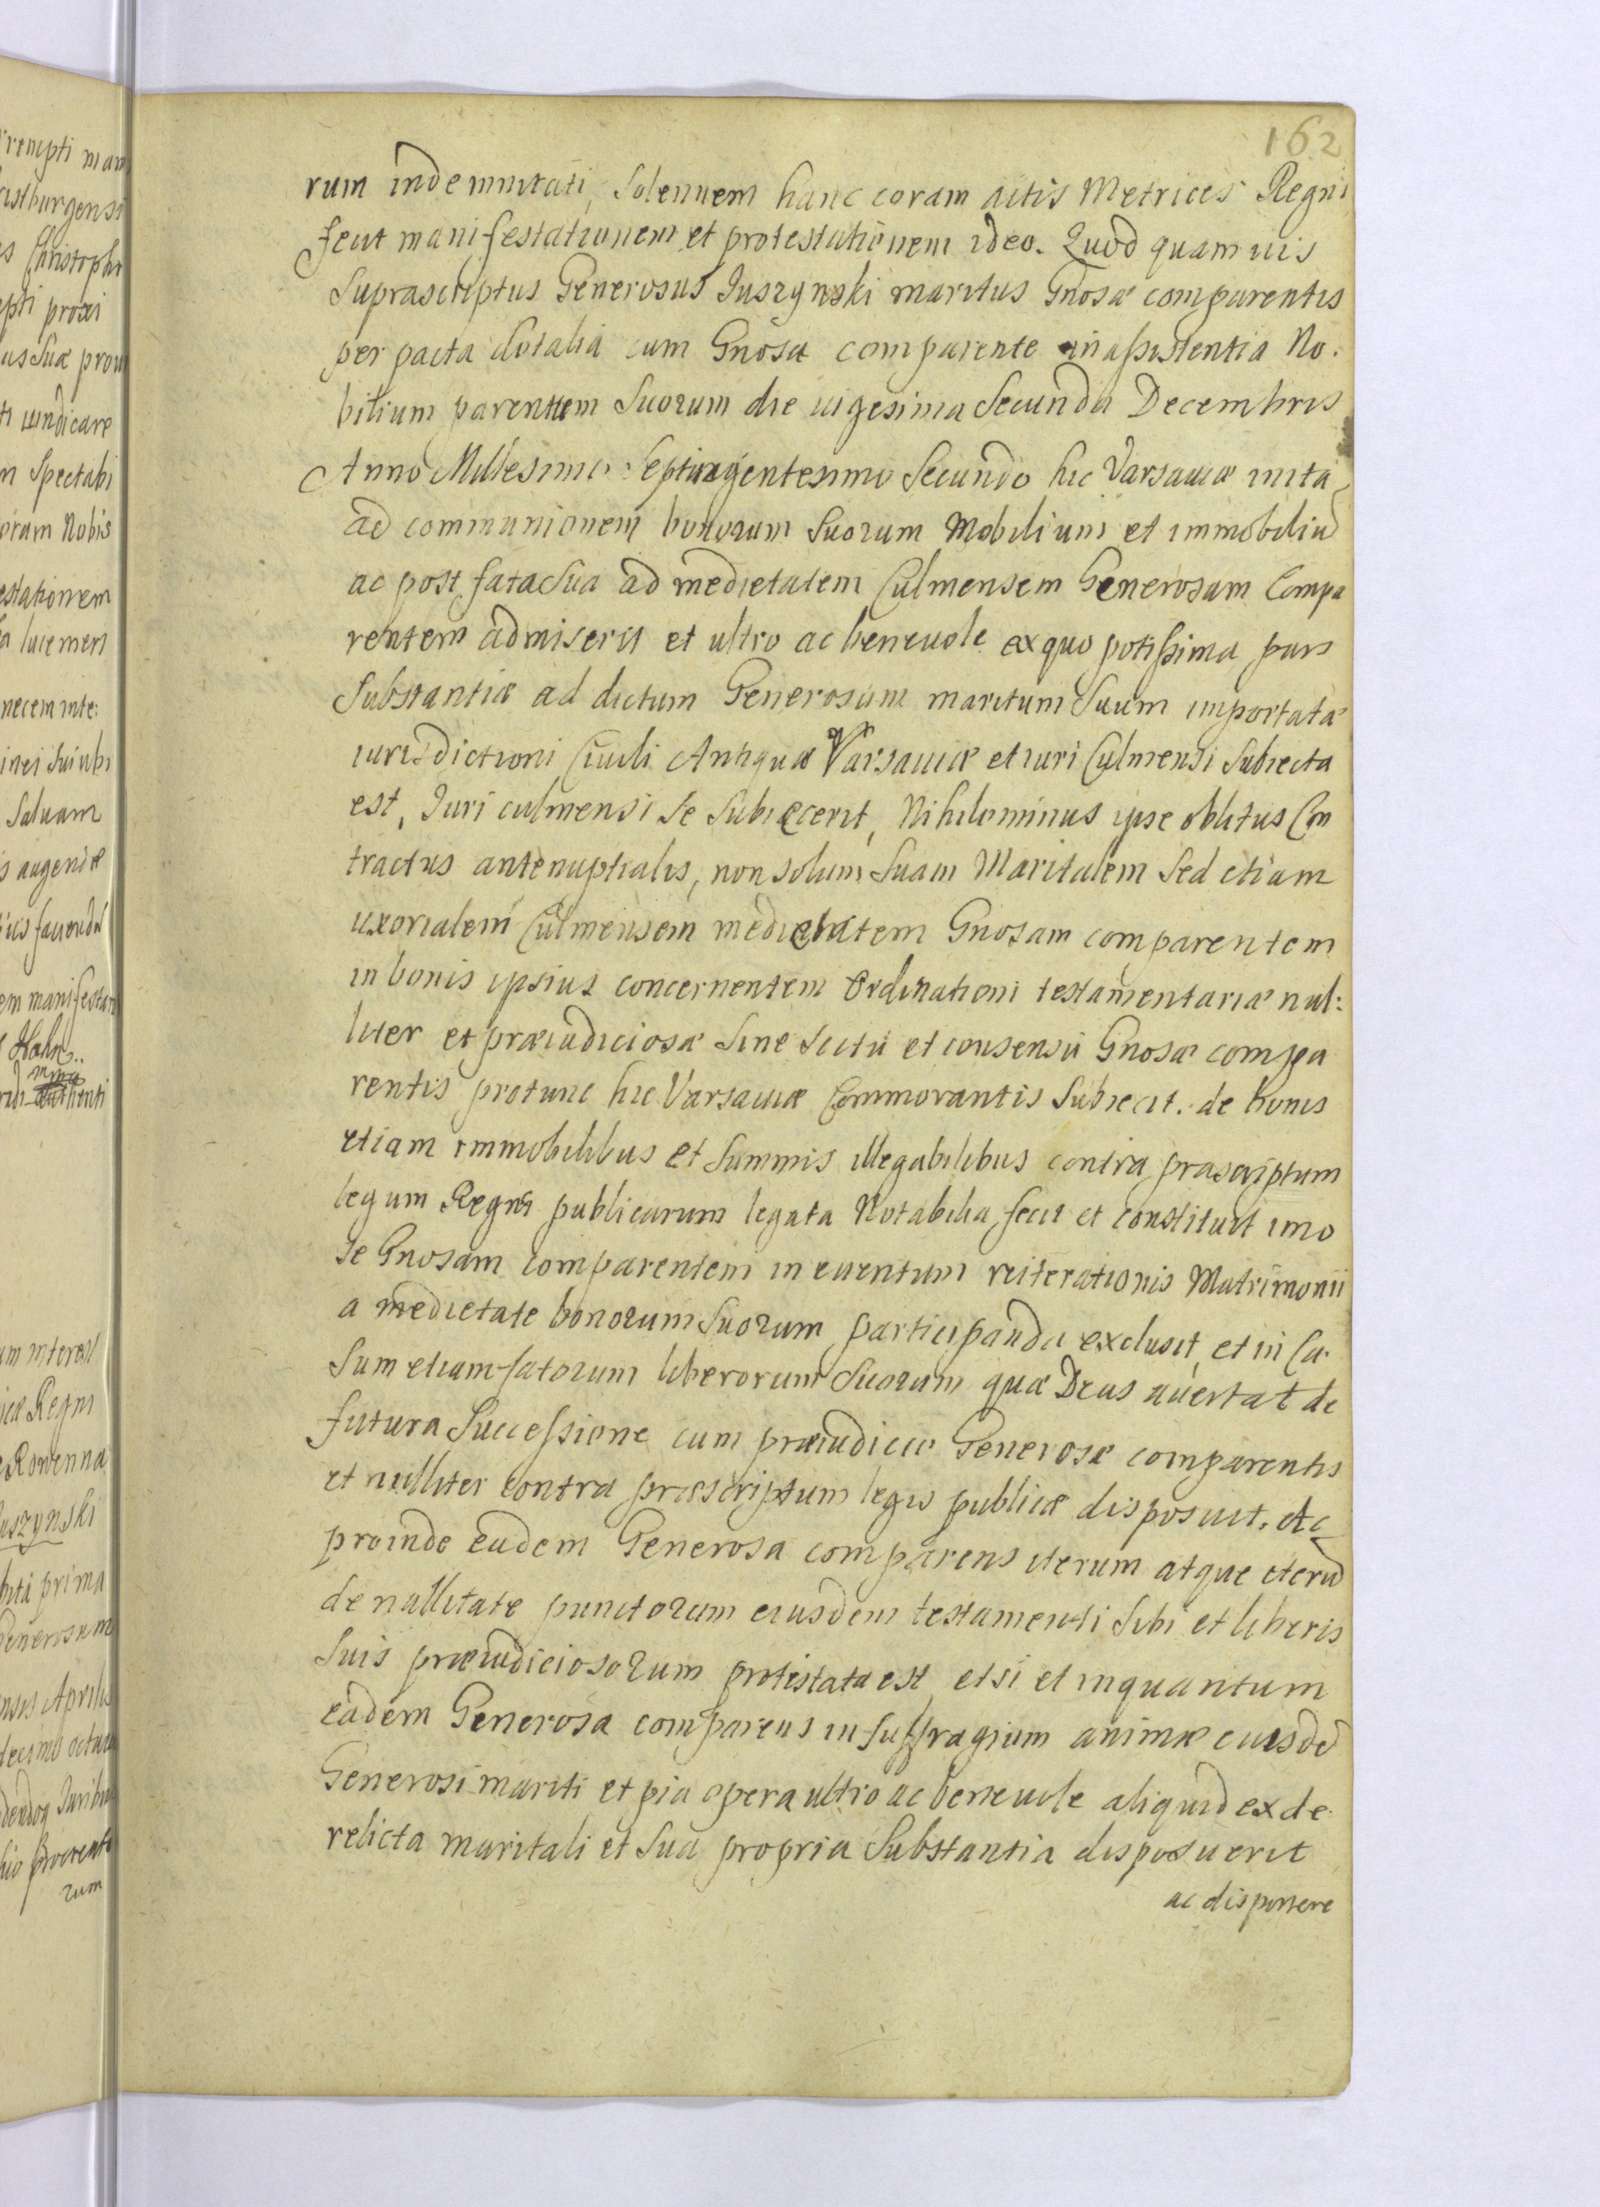 162
rum indemnitati, Solennem hanc coram actis Metrices Regni
fecit manifestationem et protestationem ideo. Quod quamuis
Suprascriptus Generosus Juszynski maritus Gnosæ comparentis
per pacta dotalia cum Gnosa comparente in assistentia No.
bilium parentum Suorum die uigesima Secunda Decembris
Anno Millesimo Septingentesimo Secundo hic Varsauiæ inita
ad communionem bonorum Suorum Mobilium et immobiliũ
ac post fata Sua ad medietatem Culmensem Generosam Compa
rentem admiserit et ultro ac beneuole ex quo potissima pars
Substantiæ ad dictum Generosum maritum Suum importata
iurisdictioni Ciuili Antiquæ Varsauiæ et iuri Culmensi Subiecta
est, Juri culmensi Se Subiecerit, Nihilominus ipse oblitus Con
tractus antenuptialis, non solum Suam Maritalem Sed etiam
uxorialem Culmensem medietatem Gnosam comparentem
in bonis ipsius concernentem Ordinationi testamentariæ nul:
liter et præiudiciosæ Sine Scitu et consensu Gnosæ compa
rentis protunc hic Varsauiæ Commorantis Subiecit. de bonis
etiam immobilibus et Summis illegabilibus contra præscriptum
legum Regni publicarum legata Notabilia fecit et constituit imo
Se Gnosam comparentem in euentum reiterationis Matrimonii
a medietate bonorum Suorum participanda exclusit, et in Ca.
Sum etiam fatorum liberorum Suorum quæ Deus auertat de
futura Successione cum præiudicio Generosæ comparentis
et nulliter contra præscriptum legis publicæ disposuit. Ac
proinde eadem Generosa comparens iterum atque iterũ
de nullitate punctorum eiusdem testamenti Sibi et liberis
Suis præiudiciosorum protestata est, et si et inquantum
eadem Generosa comparens in Suffragium animæ eiusdẽ
Generosi mariti et pia opera ultro ac beneuole aliquid ex de
relicta maritali et Sua propria Substantia disposuerit
ac disponere